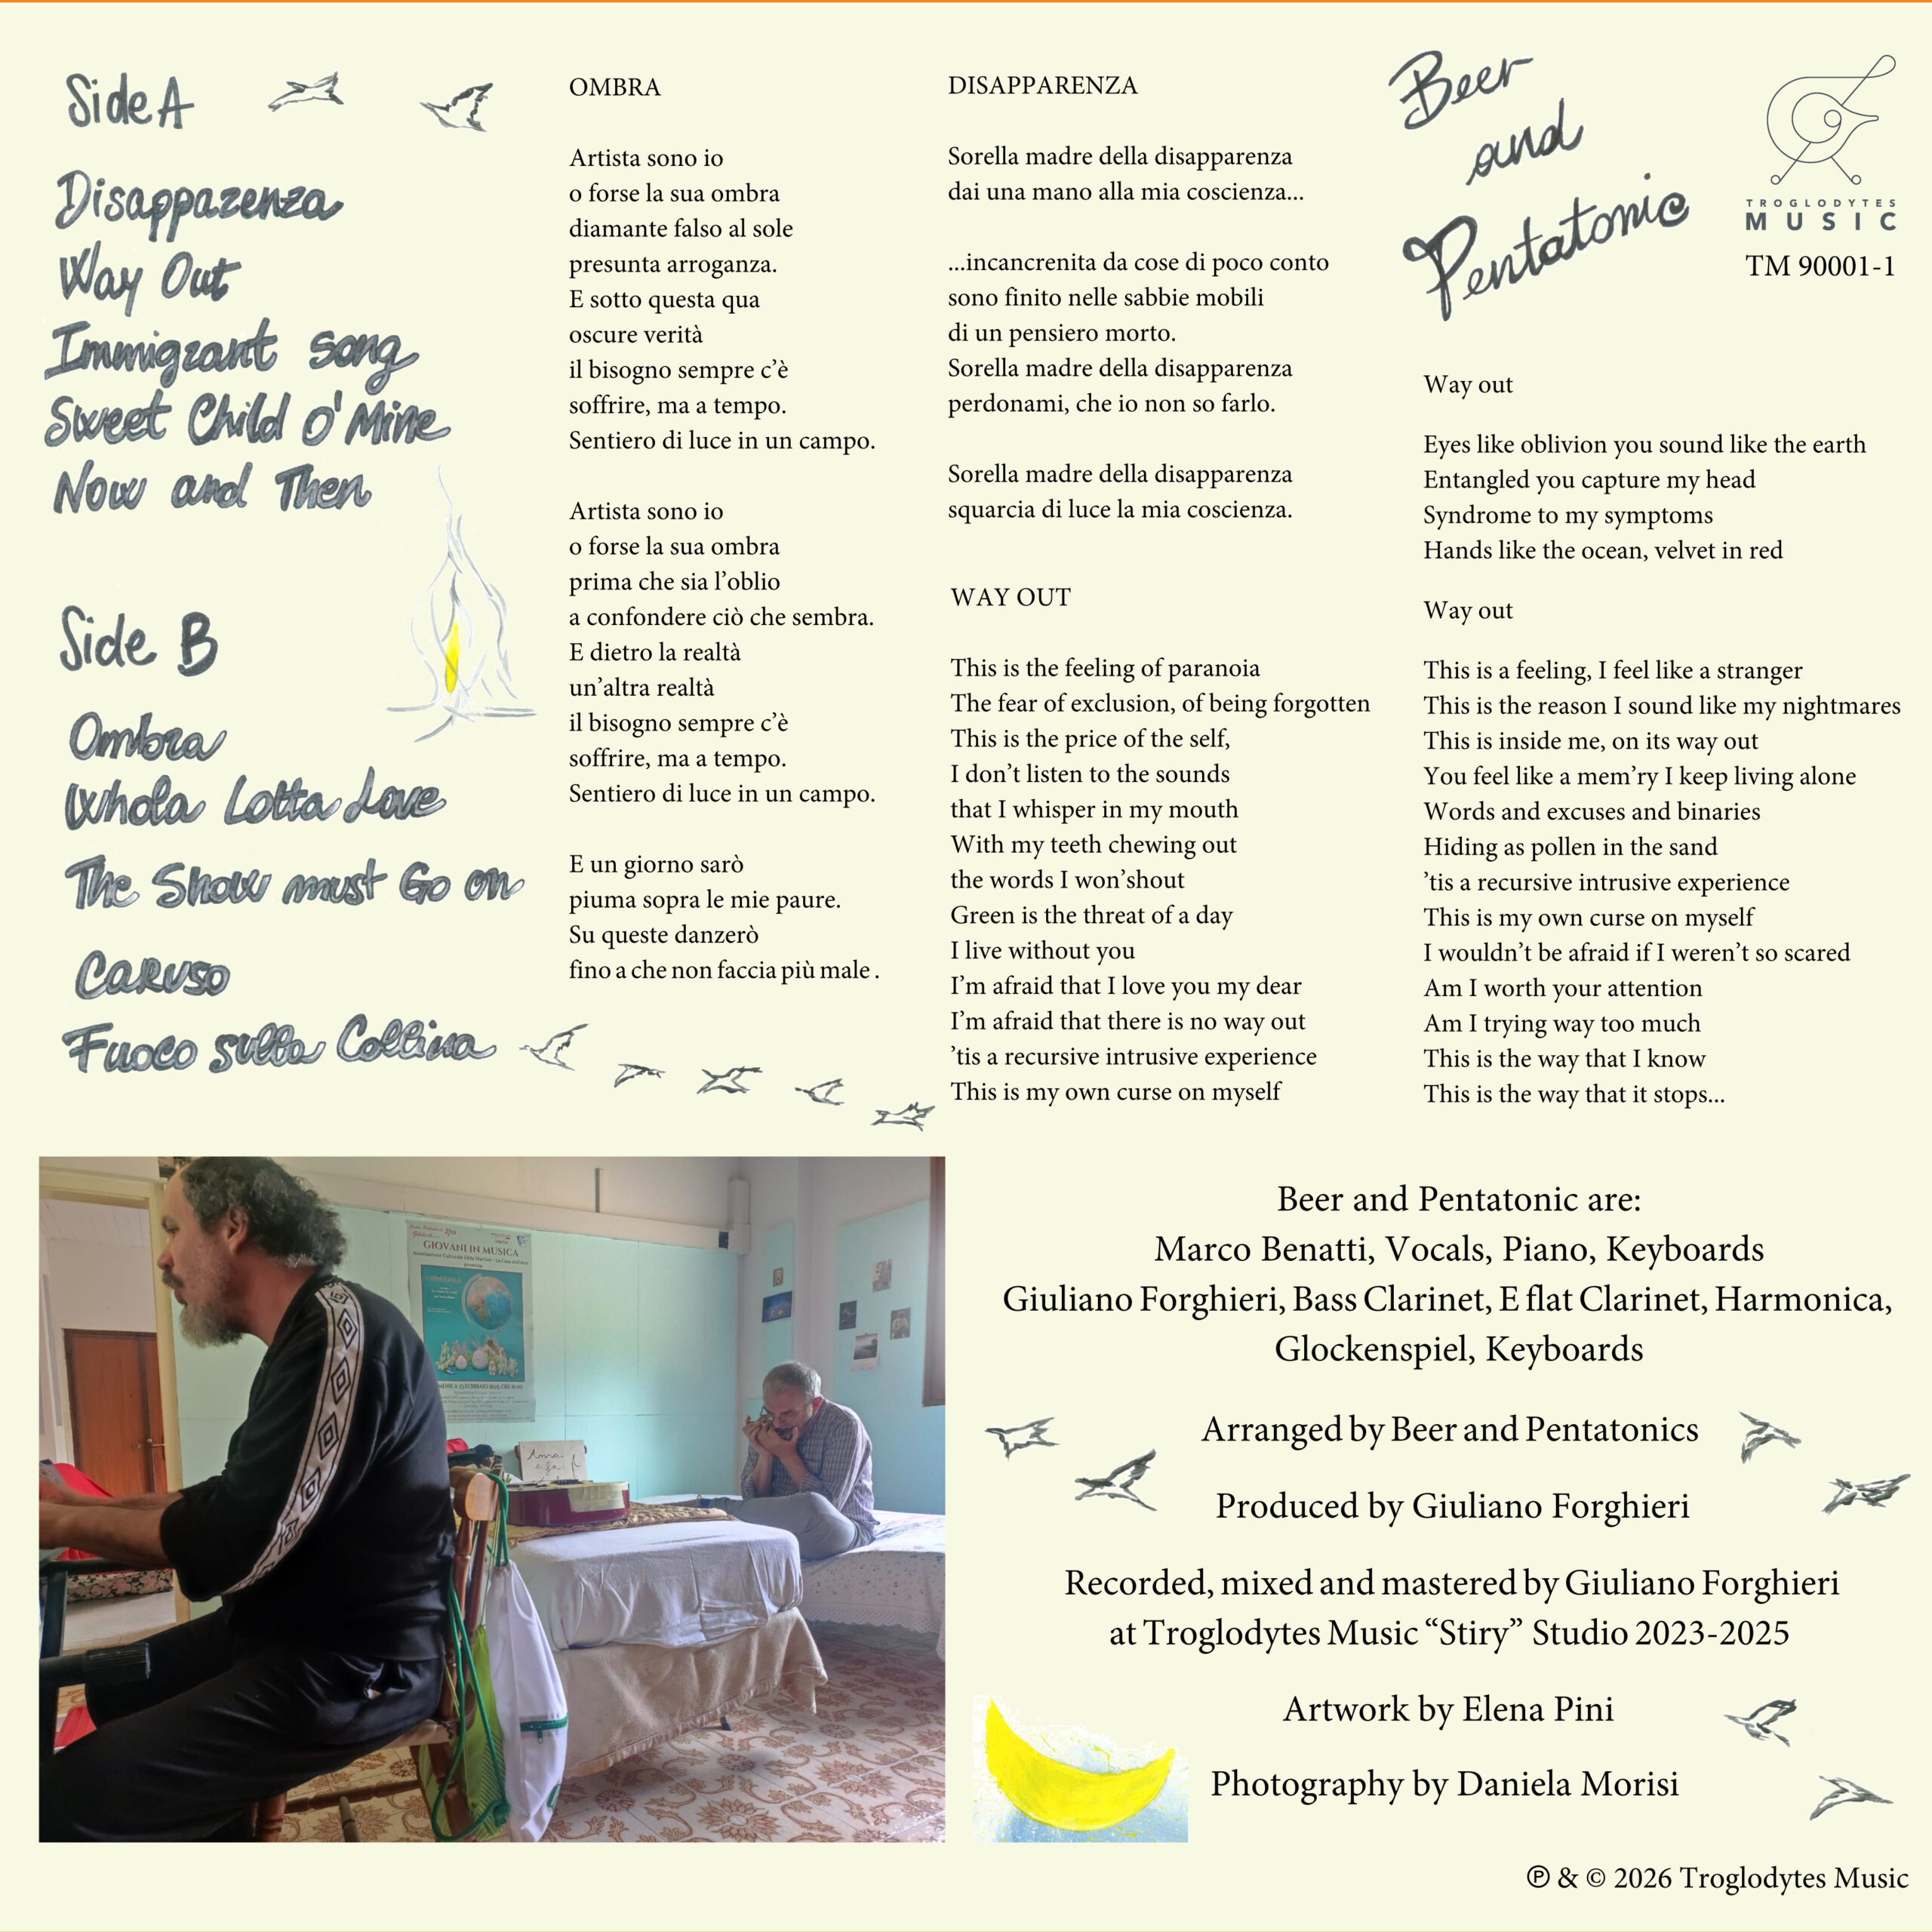 Side A
Disapparenza
Way Out
Immigrant song
Sweet Child o' Mine
Now and Then
Side B
Ombra
Whola Lotta Love
The Show must Go on
Caruso
Fuoco sulla Collina
OMBRA
Artista sono io
o forse la sua ombra
diamante falso al sole
presunta arroganza.
E sotto questa qua
oscure verità
il bisogno sempre c’è
soffrire, ma a tempo.
Sentiero di luce in un campo.
Artista sono io
o forse la sua ombra
prima che sia l’oblio
a confondere ciò che sembra.
E dietro la realtà
un’altra realtà
il bisogno sempre c’è
soffrire, ma a tempo.
Sentiero di luce in un campo.
E un giorno sarò
piuma sopra le mie paure.
Su queste danzerò
fino a che non faccia più male .
DISAPPARENZA
Sorella madre della disapparenza
dai una mano alla mia coscienza...
...incancrenita da cose di poco conto
sono finito nelle sabbie mobili
di un pensiero morto.
Sorella madre della disapparenza
perdonami, che io non so farlo.
Sorella madre della disapparenza
squarcia di luce la mia coscienza.
WAY OUT
This is the feeling of paranoia
The fear of exclusion, of being forgotten
This is the price of the self,
I don’t listen to the sounds
that I whisper in my mouth
With my teeth chewing out
the words I won’shout
Green is the threat of a day
I live without you
I’m afraid that I love you my dear
I’m afraid that there is no way out
’tis a recursive intrusive experience
This is my own curse on myself
Beer
and
Pentatonic
TROGLODYTES
MUSIC
TM 90001-1
Way out
Eyes like oblivion you sound like the earth
Entangled you capture my head
Syndrome to my symptoms
Hands like the ocean, velvet in red
Way out
This is a feeling, I feel like a stranger
This is the reason I sound like my nightmares
This is inside me, on its way out
You feel like a mem’ry I keep living alone
Words and excuses and binaries
Hiding as pollen in the sand
’tis a recursive intrusive experience
This is my own curse on myself
I wouldn’t be afraid if I weren’t so scared
Am I worth your attention
Am I trying way too much
This is the way that I know
This is the way that it stops...
GIOVANI IN MUSICA
Beer and Pentatonic are:
Marco Benatti, Vocals, Piano, Keyboards
Giuliano Forghieri, Bass Clarinet, E flat Clarinet, Harmonica,
Glockenspiel, Keyboards
Arranged by Beer and Pentatonics
Produced by Giuliano Forghieri
Recorded, mixed and mastered by Giuliano Forghieri
at Troglodytes Music “Stiry” Studio 2023-2025
Artwork by Elena Pini
Photography by Daniela Morisi
℗ & © 2026 Troglodytes Music